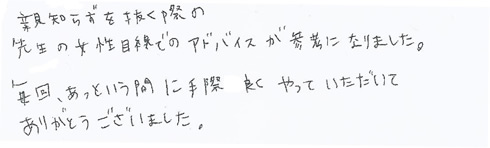 親知らずを抜く際の
先生の女性目線でのアドバイスが参考になりました。
毎回、あっという間に手際良くやっていただいて
ありがとうございました。